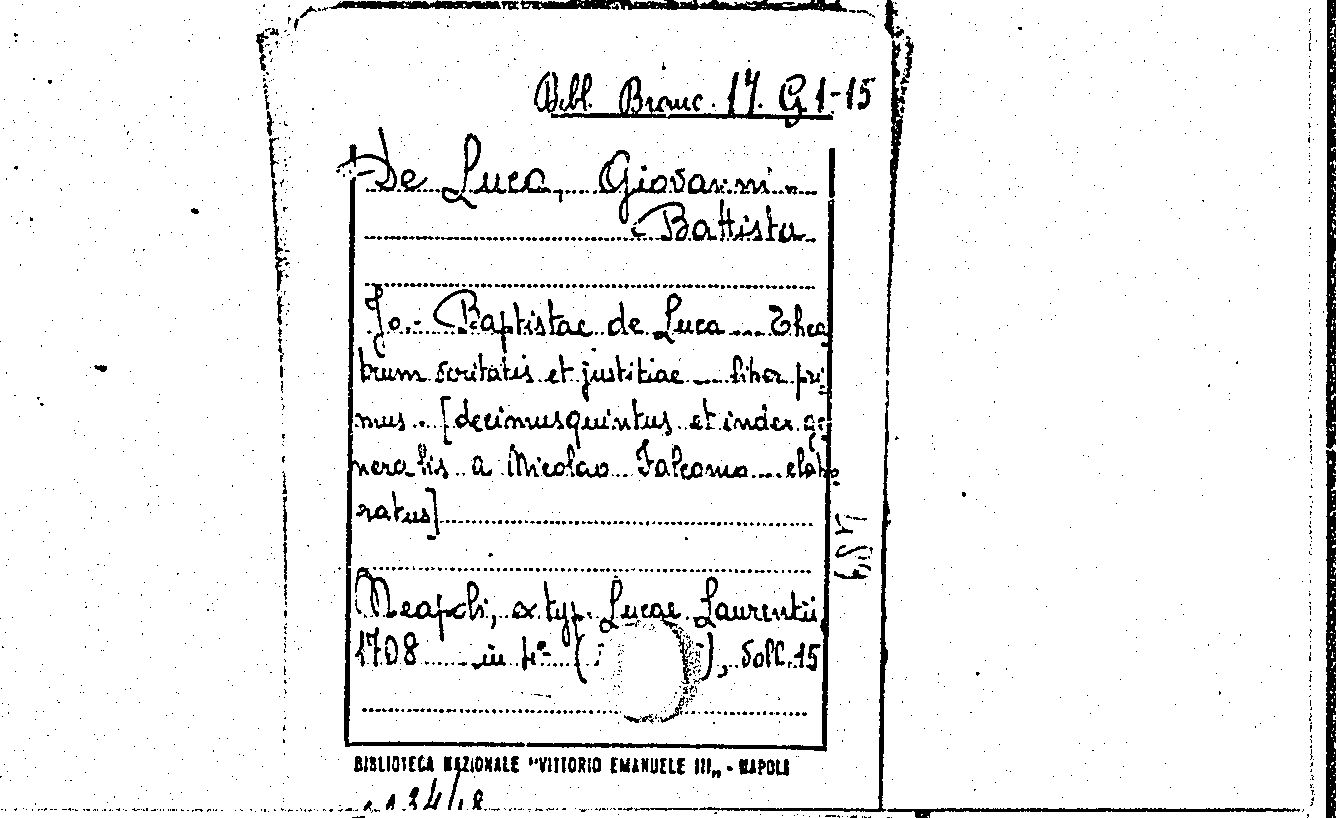 Bibl. Branc. 17. G. 1-15
De Luca, Giovanni
Battista
Jo. Baptistae de Luca ... Thea
trum veritatis et justitiae ... liber pri
mus ... [decimusquintus et index ge
neralis a Nicolao Falcono ... elabo
ratus]
Neapoli, ex typ. Lucae Laurentii
1708 in 4° ( ), voll. 15
BIBLIOTECA NAZIONALE "VITTORIO EMANUELE III„ - NAPOLI